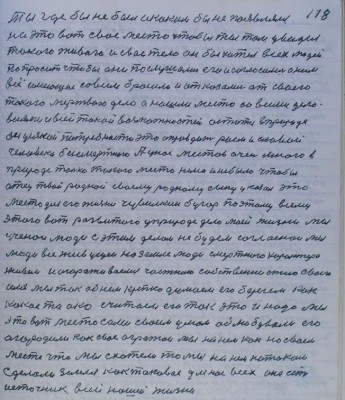 118
Ты где бы не был и каким бы не появлялся
на это вот свое место чтобы ты там увидел
такого живого и свое тело он бы хотел всех людей
попросить чтобы они послушали его и согласились с ним
всё имеющее совсем бросили и отказались от своего
такого мертвого дела а нашли место со всеми дело
и всей такой возможностей стать в природе
без всякой потребности это оправдать рай и славой
человеку бессмертного А у нас местов очень много в
природе только такого место нема и не было чтобы
отец твой родной своему родному сыну указал это
место для его жизни Чувилкин бугор поэтому всему
этого вот развитого в природе дело моей жизни мы
ученые люди с этим делом не будем согласны мы
люди все живущие на земле люди смертного характера
живем и огораживаем частною собственностью своего
села мы так об нем крепко думаем его бережем как
какое-то око считаем его так это и надо мы
это вот место сами своим умом облюбовали его
огородили как свое огротое мы на нем как на своем
месте что мы схотели то мы на нем потокам
сделали земля как таковая у нас всех она есть
источник всей нашей жизни